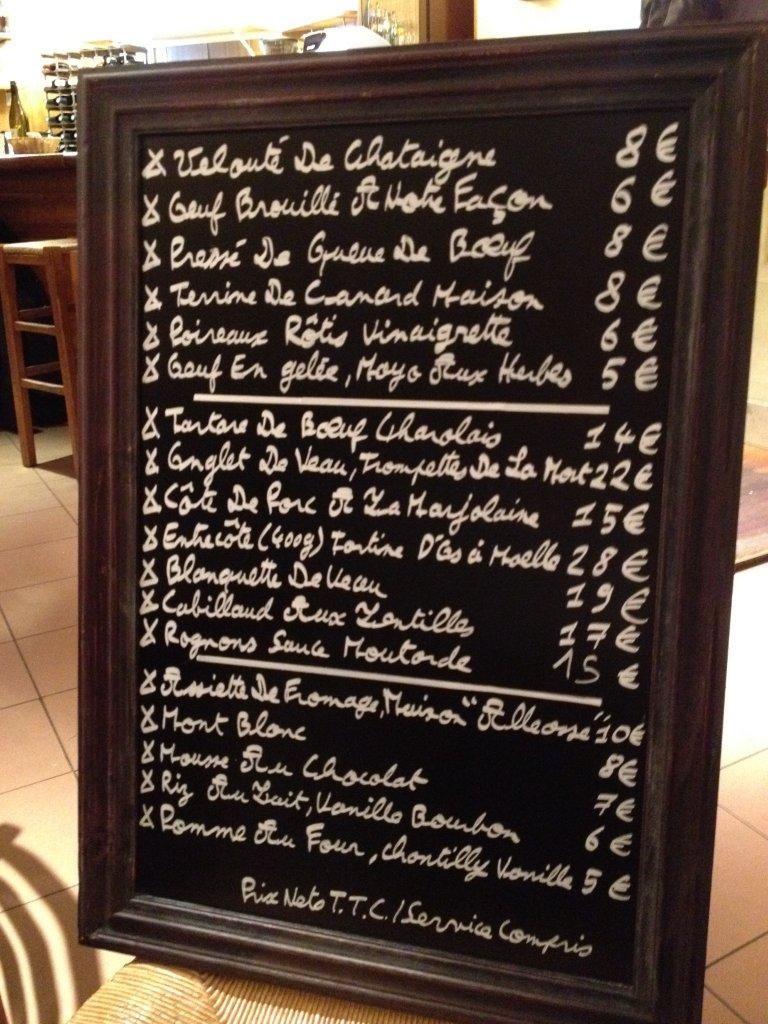 x Velouté De Chataigne 8 €
x Oeuf Brouillé A Notre Façon 6 €
x Pressé De Queue De Bœuf 8 €
x Terrine De Canard Maison 8 €
x Poireaux Rôtis Vinaigrette 6 €
x Oeuf En gelée, Mayo Aux Herbes 5 €
x Tartare De Bœuf Charolais 14 €
x Onglet De Veau, Trompettes De La Mort 22 €
x Côte De Porc A La Marjolaine 15 €
x Entrecôte (400g) Tartine D'Os à Moelle 28 €
x Blanquette De Veau 19 €
x Cabillaud Aux Lentilles 17 €
x Rognons Sauce Moutarde 15 €
x Assiette De Fromage, Maison "Alleosse" 10 €
x Mont Blanc 8 €
x Mousse Au Chocolat 7 €
x Riz Au Lait, Vanille Bourbon 6 €
x Pomme Au Four, Chantilly Vanille 5 €
Prix Nets T.T.C. / Service Compris